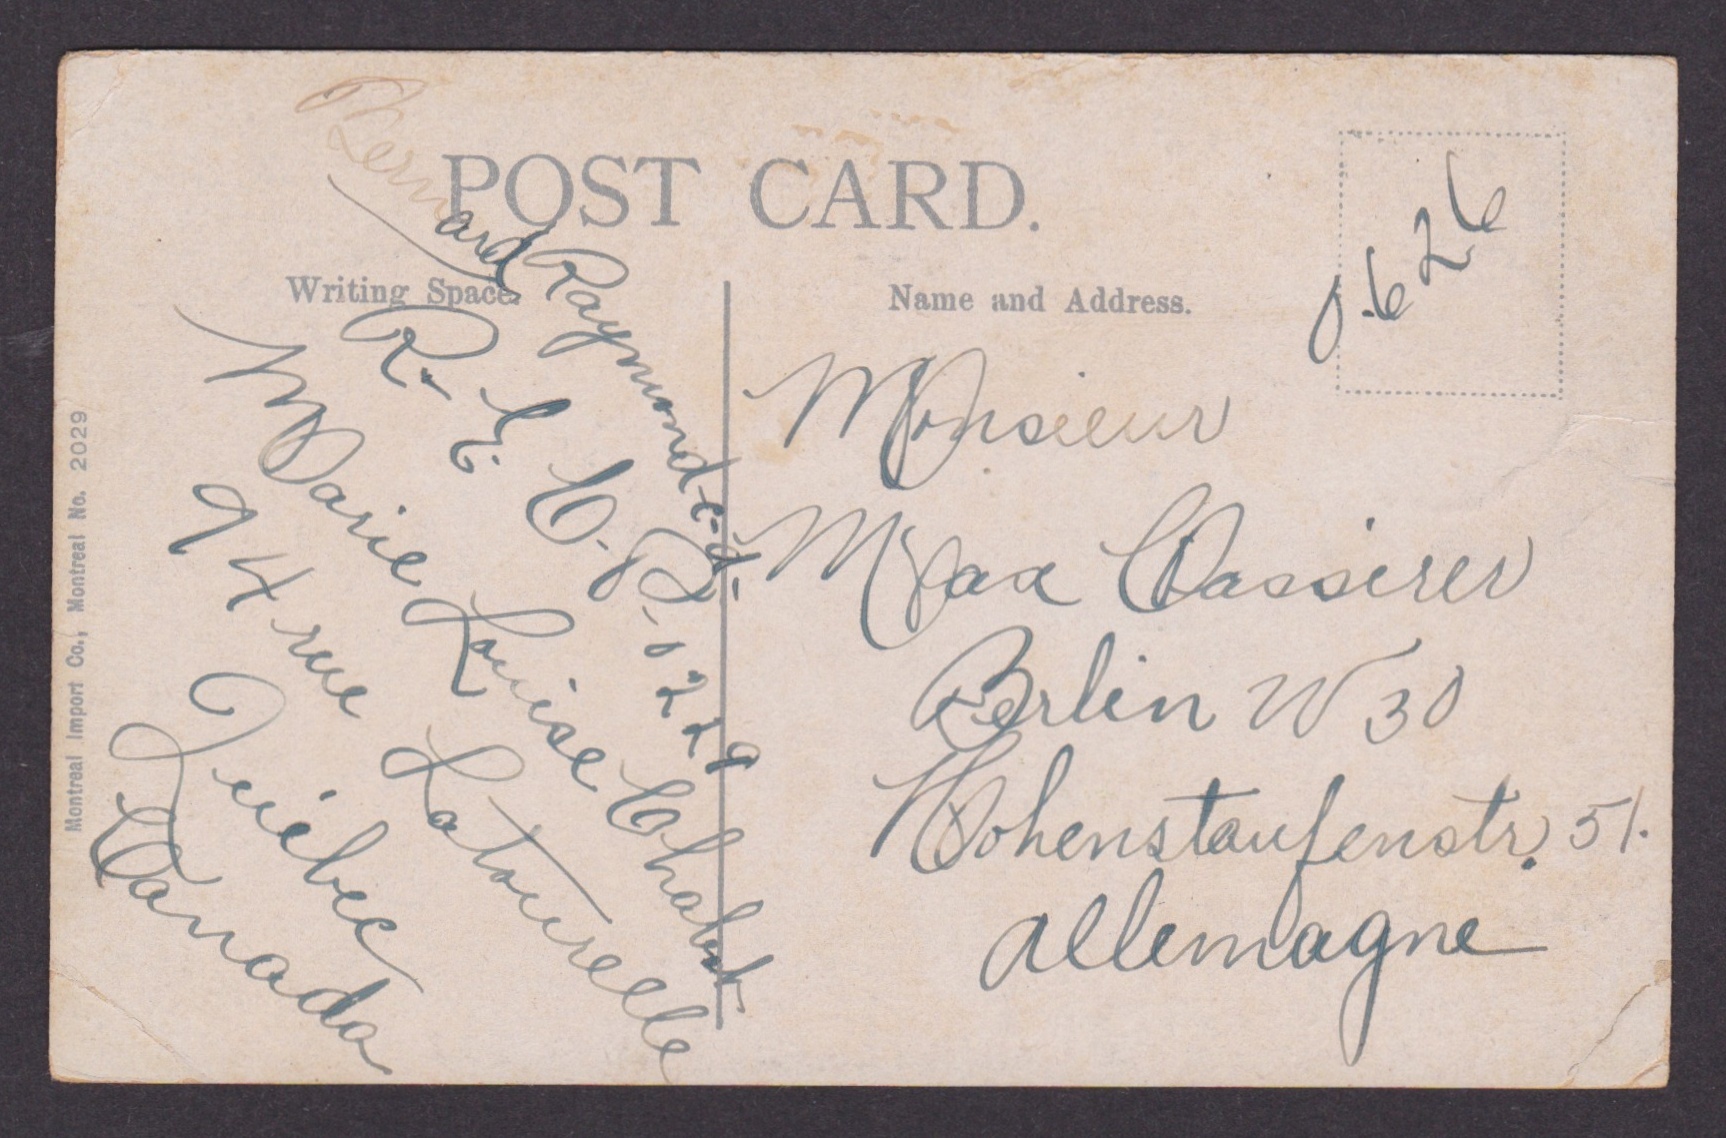 POST CARD.
Writing Space.
Name and Address.
Bernard Raymond
R. E. C. B. 0229
Marie Louise Chabot
94 rue Latourelle
Québec
Canada
6 26
Monsieur
Max Cassirer
Berlin W 30
Hohenstaufenstr. 51.
Allemagne
Montreal Import Co., Montreal No. 2029